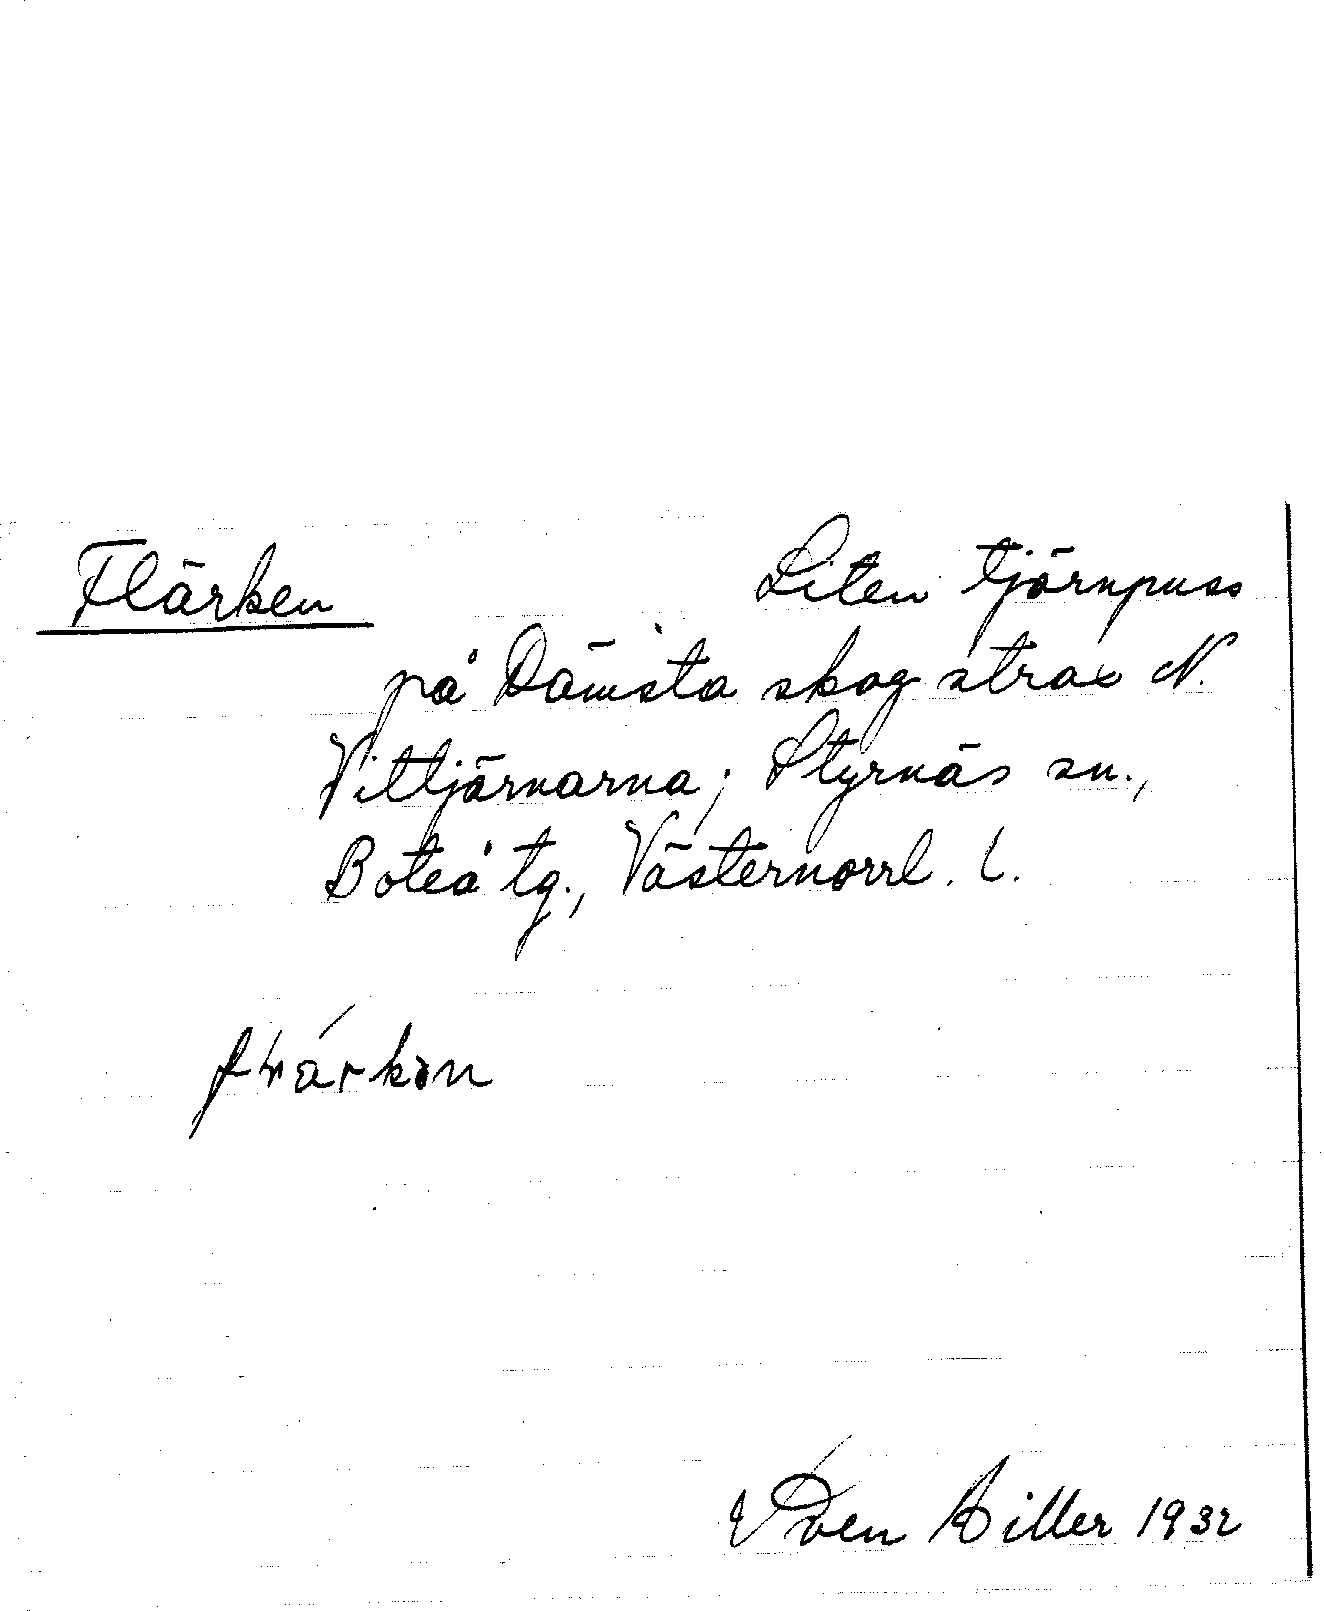 Flärken Liten tjärnpuss
på Dämsta skog strax N.
Vittjärnarna; Styrnäs sn.,
Boteå tg., Västernorrl. l.
Sven Hiller 1932